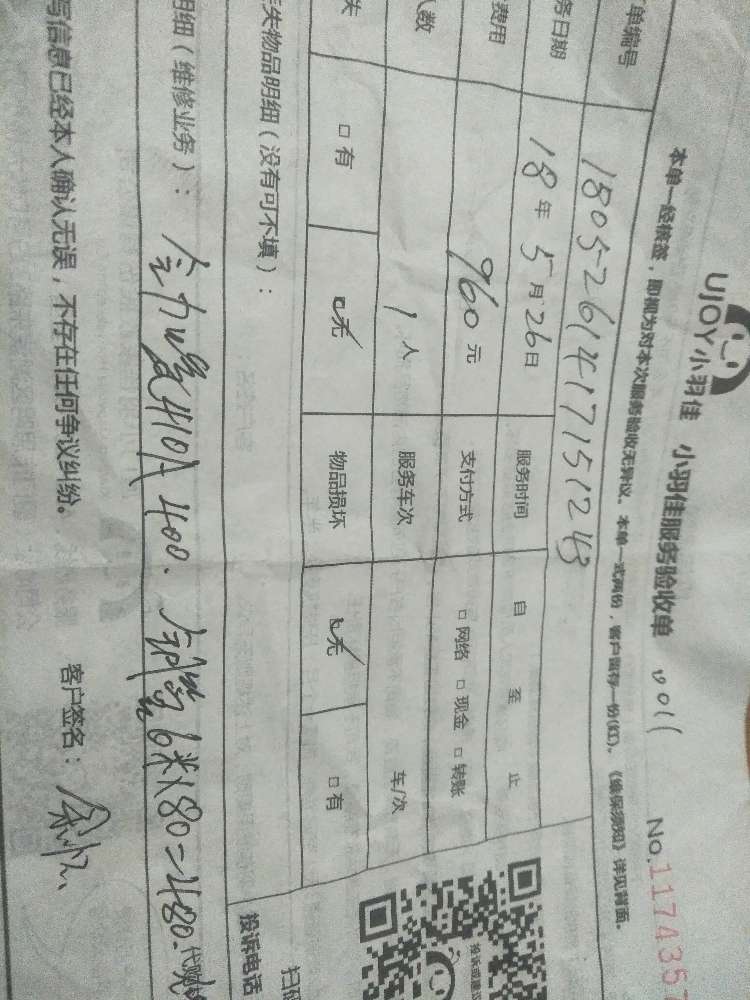 UJOY小羽佳 小羽佳服务验收单 No.117435
本单一经核签，即视为对本次服务验收无异议。本单一式两份，客户留存一份(红)。《维保须知》详见背面。
单编号 1805261417151243
务日期 18年5月26日 服务时间 自 至 止
费用 960元 支付方式 □网络 □现金 □转账
人数 1人 服务车次 车/次
失 □有 □无 物品损坏 □无 □有
失物品明细（没有可不填）：
投诉电话
明细（维修业务）： 410A 400. 6米×80=480.
写信息已经本人确认无误，不存在任何争议纠纷。 客户签名：